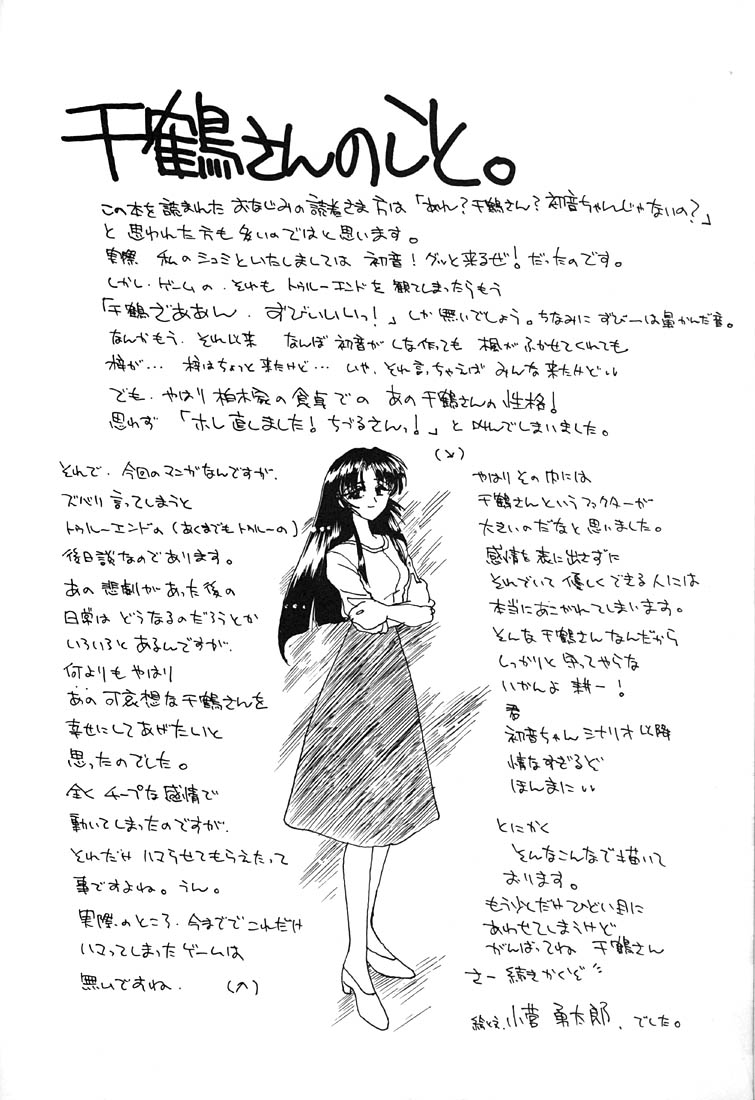 千鶴さんのこと。
この本を読まれた おなじみの読者さま方は「あれ?千鶴さん?初音ちゃんじゃないの?」
と 思われた方も多いのではと思います。
実際 私のシュミといたしましては 初音!グッと来るぜ!だったのです。
しかし、ゲームの、それも トゥルーエンドを観てしまったらもう
「千鶴ざああん、ずびいいいっ!」しか無いでしょう。ちなみに ずびーは鼻かんだ音。
なんかもう、それ以来 なんぼ 初音がしな作っても 楓がふかせてくれても
梓が… 梓はちょっと来たけど… いや、それ言っちゃえば みんな来たけどぃぃ
でも、やはり 柏木家の食卓での あの千鶴さんの性格!
思わず 「ホレ直しました!ちづるさんっ!」と叫んでしまいました。
それで、今回のマンガなんですが、
ズバリ言ってしまうと
トゥルーエンドの(あくまでもトゥルーの)
後日談なのであります。
あの 悲劇があった後の
日常は どうなるのだろうとか
いろいろと あるんですが、
何よりも やはり
あの 可哀想な千鶴さんを
幸せにしてあげたいと
思ったのでした。
全く チープな感情で
動いてしまったのですが、
それだけ ハマらせてもらえたって
事ですよね。うん。
実際のところ、今までで これだけ
ハマってしまったゲームは
無いですね。
やはり その中には
千鶴さんというファクターが
大きいのだなと 思いました。
感情を表に出さずに
それでいて 優しくできる人には
本当にあこがれてしまいます。
そんな 千鶴さんなんだから
しっかりと 守ってやらな
いかんよ 耕一!
君
初音ちゃんシナリオ以降
情なすぎるど
ほんまにぃぃ
とにかく
そんなこんなで 描いて
おります。
もう少しだけ ひどい目に
あわせてしまうけど
がんばってね 千鶴さん
さー 続きかくぞ
小菅 勇太郎、でした。